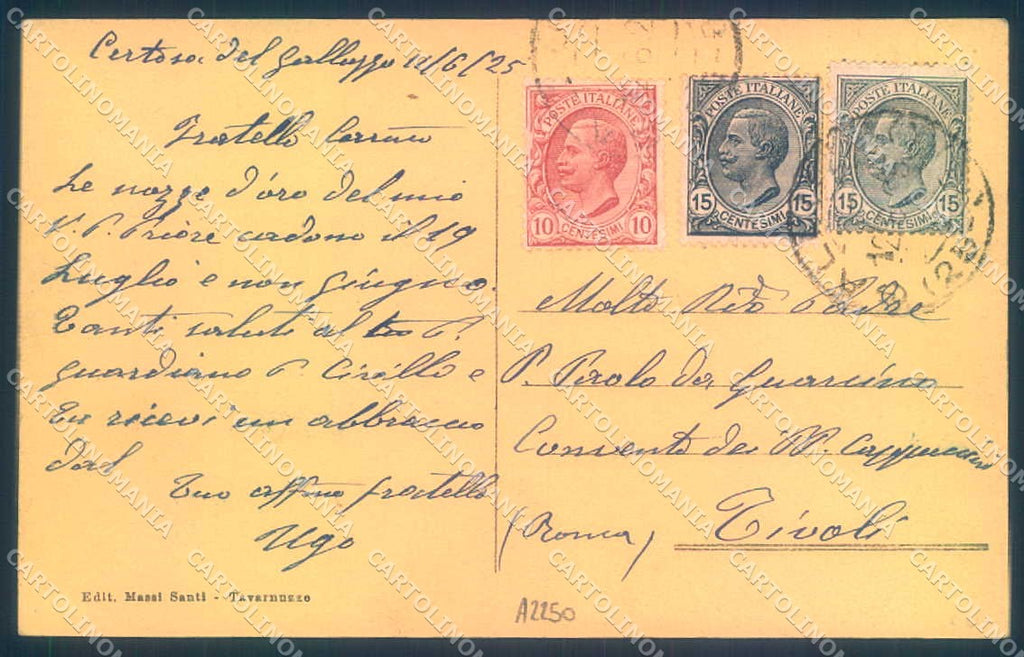 Certosa del Galluzzo 12/6/25
Fratello Carmo
Le nozze d'oro del mio
V. P. Priore cadono il 19
Luglio e non giugno.
Tanti saluti al P.
guardiano P. Cirillo e
tu ricevi un abbraccio
dal
Tuo affmo fratello
Ugo
Edit. Massi Santi - Tavarnuzze
POSTE ITALIANE
10 CENTESIMI 10
POSTE ITALIANE
15 CENTESIMI 15
POSTE ITALIANE
15 CENTESIMI 15
Molto Rdo Padre
P. Paolo da Guarcino
Convento dei PP. Cappuccini
Tivoli
(Roma)
A2250
CARTOLINOMANIA